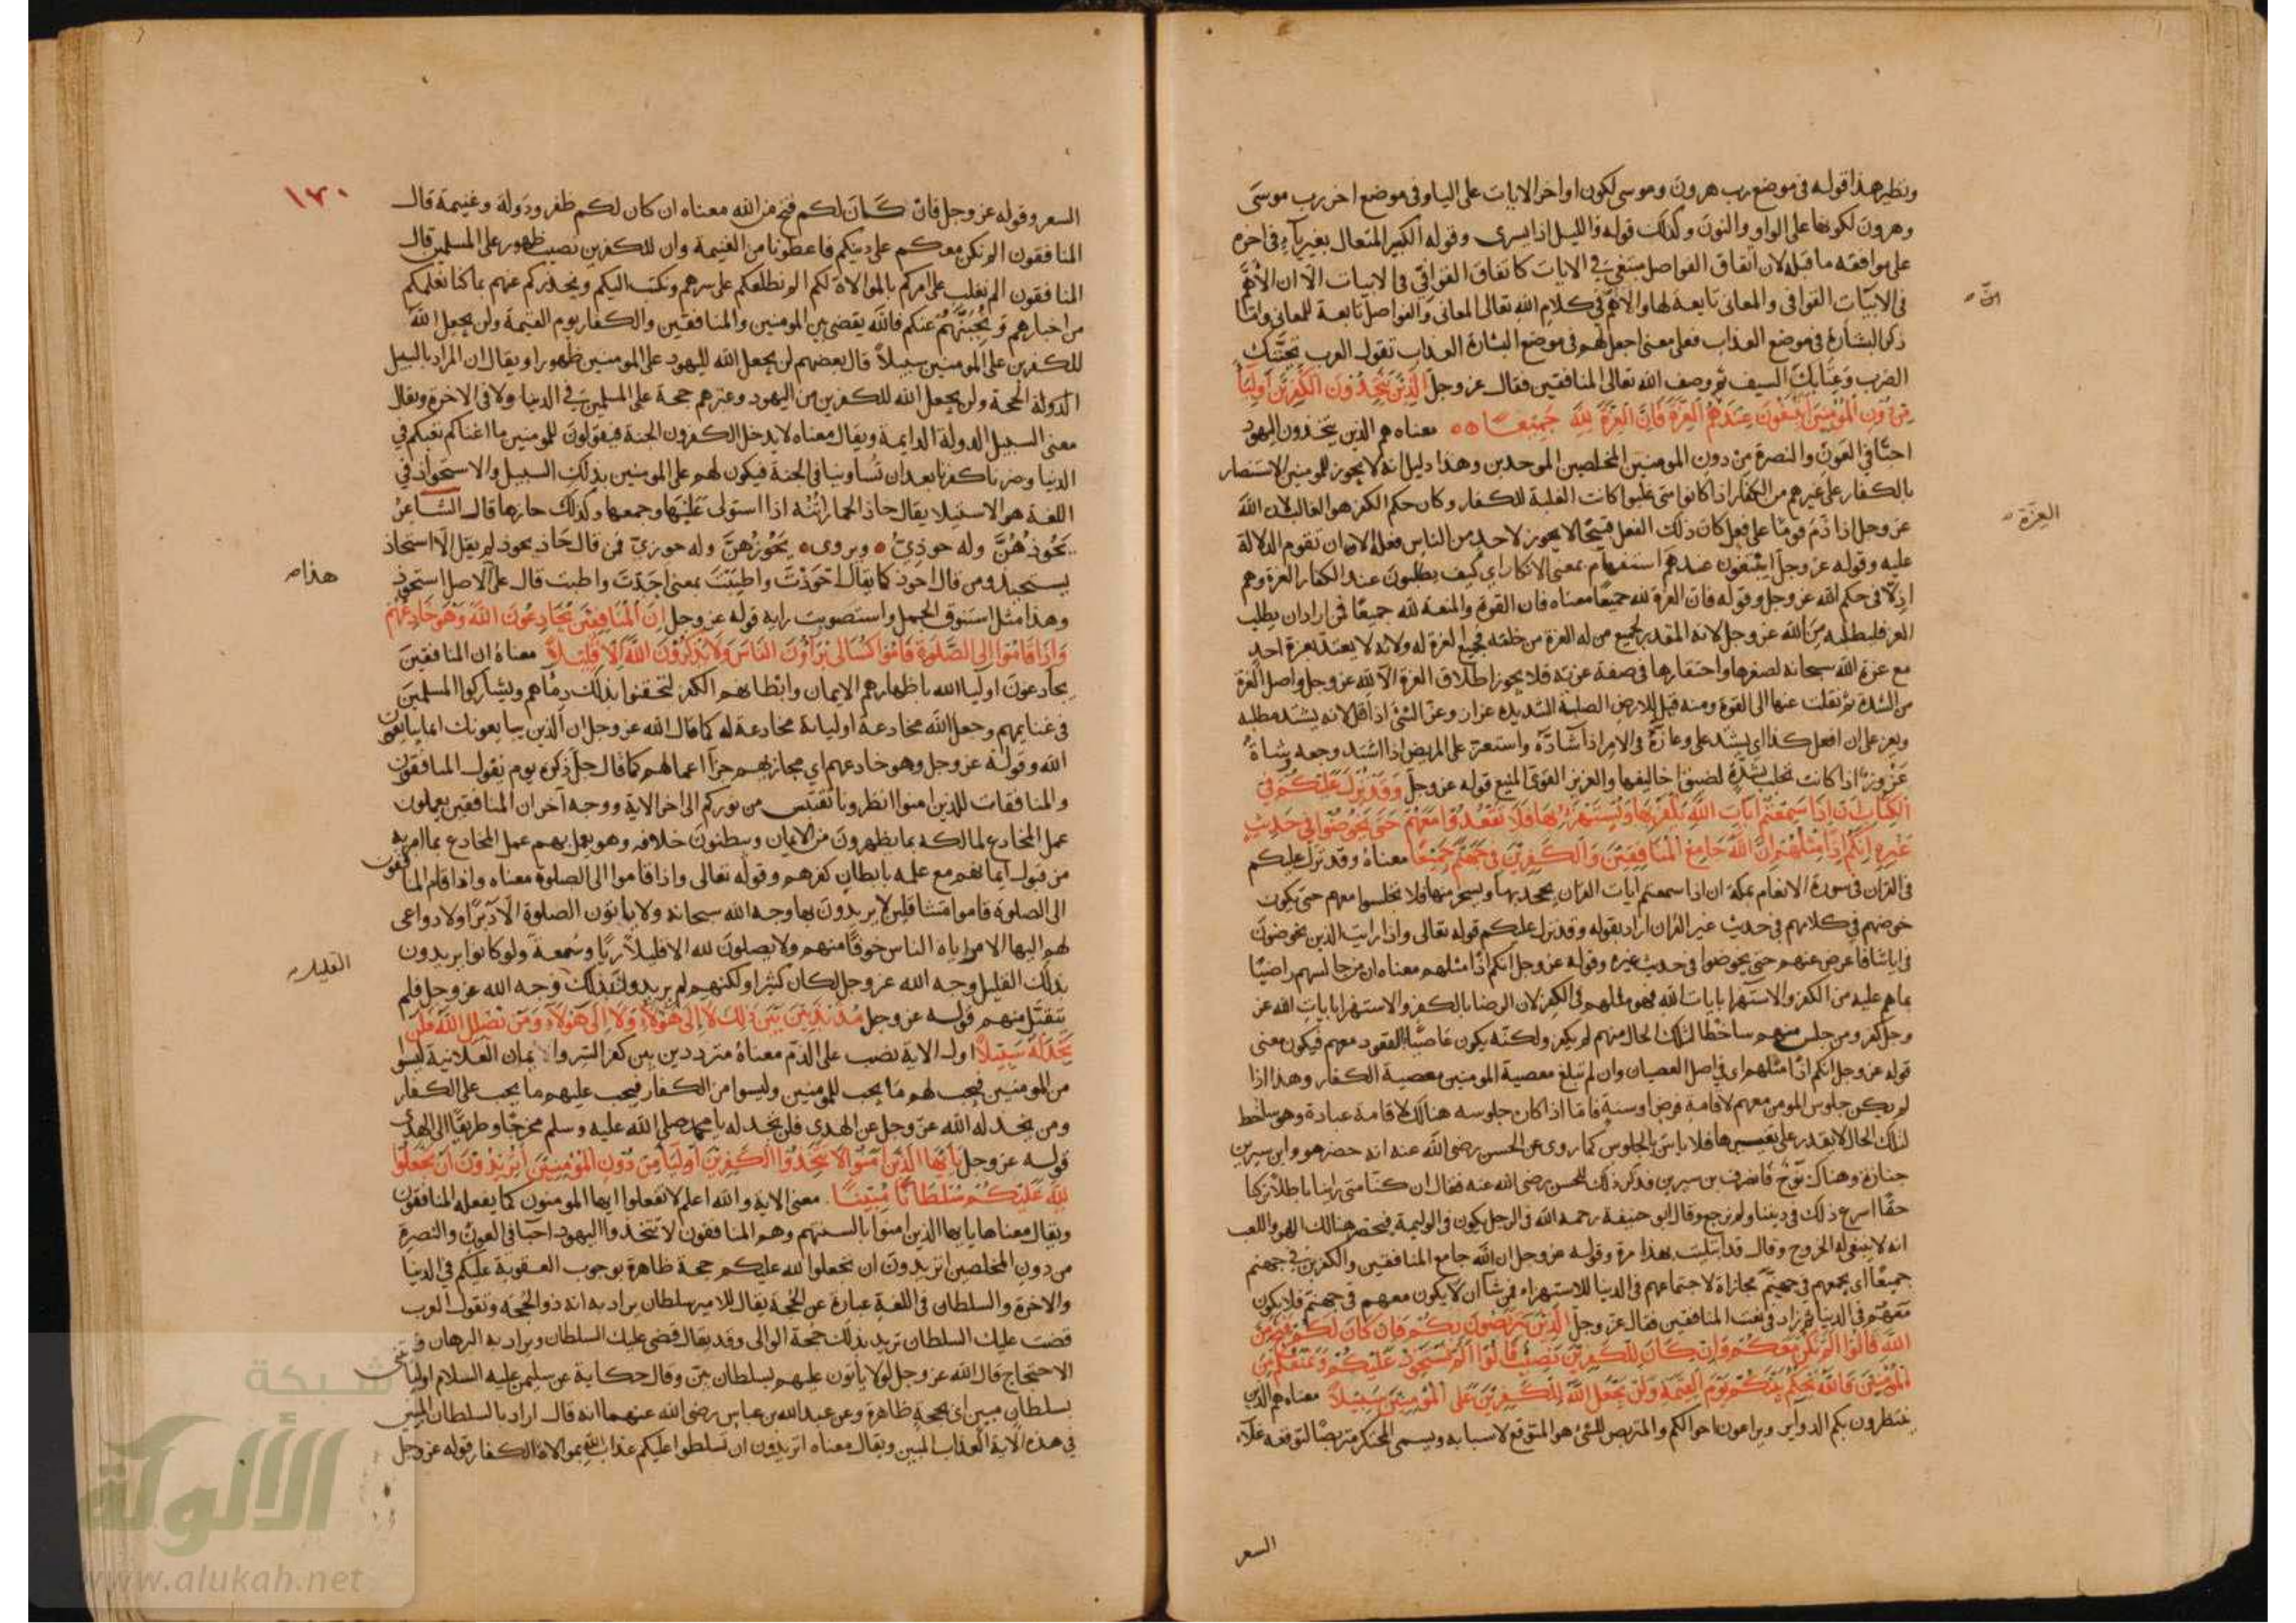 ونظير هذا قوله في موضع رب هرون وموسى لكون اواخر الايات على اليا وفي موضع اخر رب موسى
وهرون لكونها على الواو والنون وكذلك قوله والليل اذا يسرى وقوله الكبير المتعال بغير ياء في اخره
على موافقة ما قبله لان اتفاق الفواصل في الايات كاتفاق القوافي في الابيات الا ان الاهم
في الابيات القوافي والمعاني تابعة لها والاهم في كلام الله تعالى المعاني والفواصل تابعة للمعاني وانما
ذكر البشارة في موضع العذاب فعلى معنى اجعل لهم في موضع البشارة العذاب تقول العرب تحيتك
الضرب وعتابك السيف ثم وصف الله تعالى المنافقين فقال عز وجل الذين يتخذون الكفرين اوليآ
من دون المؤمنين ايبتغون عندهم العزة فان العزة لله جميعا معناه هم الذين يتخذون اليهود
احبا في العون والنصرة من دون المومنين المخلصين الموحدين وهذا دليل انه لا يجوز للمومنين الاستنصار
بالكفار على غيرهم من الكفار اذا كانوا متى غلبوا كانت الغلبة للكفار وكان حكم الكفر هو الغالب لان الله
عز وجل اذا ذم قوما على فعل كان ذلك الفعل قبيحا لا يجوز لاحد من الناس فعله الا ان تقوم الدلالة
عليه وقوله عز وجل ايبتغون عندهم استفهام بمعنى الانكار اي كيف يطلبون عند الكفار العزة وهم
اذلا في حكم الله عز وجل وقوله فان العزة لله جميعا معناه فان القوة والمنعة لله جميعا فمن اراد ان يطلب
العز فليطلبه من الله عز وجل لانه المقدر لجميع من له العزة من خلقه فجميع العزة له ولانه لا يعتد بعزة احد
مع عزة الله سبحانه لصغرها واحتقارها في صفة عزته فلا يجوز اطلاق العزة الا لله عز وجل واصل العزة
من الشدة ثم نقلت عنها الى القوة ومنه قيل للارض الصلبة الشديدة عزاز وعز الشئ اذا قل لانه يشتد مطلبه
ويعز على ان افعل كذا اي يشتد على وعازه في الامر اذا شاده واستعز على المريض اذا اشتد وجعه وشاة
عزوز اذا كانت تحلب بشدة لضيق احاليلها والعزيز القوى المنيع قوله عز وجل وقد نزل عليكم في
الكتاب ان اذا سمعتم ايات الله يكفر بها ويستهزأ بها فلا تقعدوا معهم حتى يخوضوا في حديث
غيره انكم اذا مثلهم ان الله جامع المنافقين والكفرين في جهنم جميعا معناه وقد نزل عليكم
في القران في سورة الانعام بمكة ان اذا سمعتم ايات القران يجحد بها ويسخر منها فلا تجلسوا معهم حتى يكون
خوضهم في كلامهم في حديث غير القران اراد بقوله وقد نزل عليكم قوله تعالى واذا رايت الذين يخوضون
في اياتنا فاعرض عنهم حتى يخوضوا في حديث غيره وقوله عز وجل انكم اذا مثلهم معناه ان من جالسهم راضيا
بما هم عليه من الكفر والاستهزا بايات الله فهو مثلهم في الكفر لان الرضا بالكفر والاستهزا بايات الله عز
وجل كفر ومن جلس منهم ساخطا لتلك الحال منهم لم يكفر ولكنه يكون عاصيا بالقعود معهم فيكون معنى
قوله عز وجل انكم اذا مثلهم اى في اصل العصيان وان لم تبلغ معصية المومنين معصية الكفار وهذا اذا
لم يكن جلوس المومن معهم لاقامة فرض او سنة فاما اذا كان جلوسه هنالك لاقامة عبادة وهو ساخط
لتلك الحال لا يقدر على تغييرها فلا باس بالجلوس كما روى عن الحسن رضى الله عنه انه حضر هو وابن سيرين
جنازة وهناك نوح فانصرف بن سيرين فذكر ذلك للحسن رضى الله عنه فقال ان كنا متى راينا باطلا تركنا
حقا اسرع ذلك في ديننا ولم نرجع وقال ابو حنيفة رحمه الله في الرجل يكون في الوليمة فيحضر هنالك اللهو واللعب
انه لا ينبغى له الخروج وقال قد ابتليت بهذا مرة وقوله عز وجل ان الله جامع المنافقين والكفرين في جهنم
جميعا اى يجمعهم في جهنم مجازاة لاجتماعهم في الدنيا للاستهزاء فمن شا ان لا يكون معهم في جهنم فلا يكون
معهم في الدنيا ثم زاد في نعت المنافقين فقال عز وجل الذين يتربصون بكم فان كان لكم فتح من
الله قالوا الم نكن معكم وان كان للكفرين نصيب قالوا الم نستحوذ عليكم ونمنعكم من
المؤمنين فالله يحكم بينكم يوم القيمة ولن يجعل الله للكفرين على المؤمنين سبيلا معناه هم الذين
ينتظرون بكم الدواير ويراعون احوالكم والمتربص للشئ هو المتوقع لاسبابه ويسمى المحتكر متربصا لتوقعه غلاء
انّ
العزة
السعر
١٧٠
السعر وقوله عز وجل فان كان لكم فتح من الله معناه ان كان لكم ظفر ودولة وغنيمة قال
المنافقون الم نكن معكم على دينكم فاعطونا من الغنيمة وان للكفرين نصيب ظهور على المسلمين قال
المنافقون الم نغلب على امركم بالموالاة لكم الم نطلعكم على سرهم ونكتب اليكم ونحذركم عنهم بما كنا نعلمكم
من اخبارهم عنكم فالله يقضى بين المومنين والمنافقين والكفار يوم القيمة ولن يجعل الله
للكفرين على المومنين سبيلا قال بعضهم لن يجعل الله لليهود على المومنين ظهورا ويقال ان المراد بالسبيل
الدولة الحجة ولن يجعل الله للكفرين من اليهود وغيرهم حجة على المسلمين في الدنيا ولا في الاخرة ويقال
معنى السبيل الدولة الدايمة ويقال معناه لا يدخل الكفرون الجنة فيقولون للمومنين ما اغناكم تعبكم في
الدنيا وضرنا كفرنا بعد ان تساوينا في الجنة فيكون لهم على المومنين بذلك السبيل والاستحواذ في
اللغة هو الاستيلا يقال حاذ الحمار اتنه اذا استولى عليها وجمعها وكذلك حازها قال الشاعر
يحوذهن وله حوذي ويروى يحوزهن وله حوزي فمن قال حاذ يحوذ لم يقل الا استحاذ
يستحيذ ومن قال احوذ كما يقال احوذت واطيبت بمعنى اجدت واطبت قال على الاصل استحوذ
وهذا مثل استنوق الجمل واستصوبت رايه قوله عز وجل ان المنافقين يخادعون الله وهو خادعهم
واذا قاموا الى الصلوة قاموا كسالى يرآؤن الناس ولا يذكرون الله الا قليلا معناه ان المنافقين
يخادعون اوليا الله باظهارهم الايمان وابطانهم الكفر لتحقنوا بذلك دماهم ويشاركوا المسلمين
في غنايمهم وجعل الله مخادعة اوليائه مخادعة له كما قال الله عز وجل ان الذين يبايعونك انما يبايعون
الله وقوله عز وجل وهو خادعهم اي مجازيهم جزآ اعمالهم كما قال جل ذكره يوم يقول المنافقون
والمنافقات للذين امنوا انظرونا نقتبس من نوركم الى اخر الاية ووجه آخر ان المنافقين يعملون
عمل المخادع لمالكه بما يظهرون من الايمان ويبطنون خلافه وهو يعمل بهم عمل المخادع بما امر به
من قبول ايمانهم مع علمه بابطان كفرهم وقوله تعالى واذا قاموا الى الصلوة معناه واذا قام المنافقون
الى الصلوة قاموا متثاقلين لا يريدون بها وجه الله سبحانه ولا ياتون الصلوة الا دبرا ولا دواعى
لهم اليها الا مراياة الناس خوفا منهم ولا يصلون لله الا قليلا ريا وسمعة ولو كانوا يريدون
بذلك القليل وجه الله عز وجل لكان كثيرا ولكنهم لم يريدوا بذلك وجه الله عز وجل فلم
تتقبل منهم قوله عز وجل مذبذبين بين ذلك لا الى هؤلاء ولا الى هؤلاء ومن يضلل الله فلن
تجد له سبيلا اول الاية نصب على الذم معناه مترددين بين كفر السر وايمان العلانية ليسوا
من المومنين فيجب لهم ما يجب للمومنين وليسوا من الكفار فيجب عليهم ما يجب على الكفار
ومن يخذله الله عز وجل عن الهدى فلن تجد له يا محمد صلى الله عليه وسلم مخرجا وطريقا الى الهدى
قوله عز وجل يا ايها الذين آمنوا لا تتخذوا الكفرين اوليآ من دون المؤمنين اتريدون ان تجعلوا
لله عليكم سلطانا مبينا معنى الاية والله اعلم لا تفعلوا ايها المومنون كما يفعله المنافقون
ويقال معناها يا ايها الذين امنوا بالسنتهم وهم المنافقون لا تتخذوا اليهود احبا في العون والنصرة
من دون المخلصين اتريدون ان تجعلوا لله عليكم حجة ظاهرة بوجوب العقوبة عليكم في الدنيا
والاخرة والسلطان في اللغة عبارة عن الحجة يقال للامير سلطان يراد به انه ذو الحجة وتقول العرب
قضت عليك السلطان تريد بذلك حجة الوالى وقد يقال قضى عليك السلطان ويراد به البرهان و
الاحتجاج قال الله عز وجل لولا ياتون عليهم بسلطان بين وقال حكاية عن سليمن عليه السلام اوليأتينى
بسلطان مبين اى بحجة ظاهرة وعن عبدالله بن عباس رضى الله عنهما انه قال اراد بالسلطان المبين
في هذه الاية العذاب المبين ويقال معناه اتريدون ان تسلطوا عليكم عذاب الله بموالاة الكفار قوله عز وجل
هذا
القليل
شبكة
الألوكة
www.alukah.net